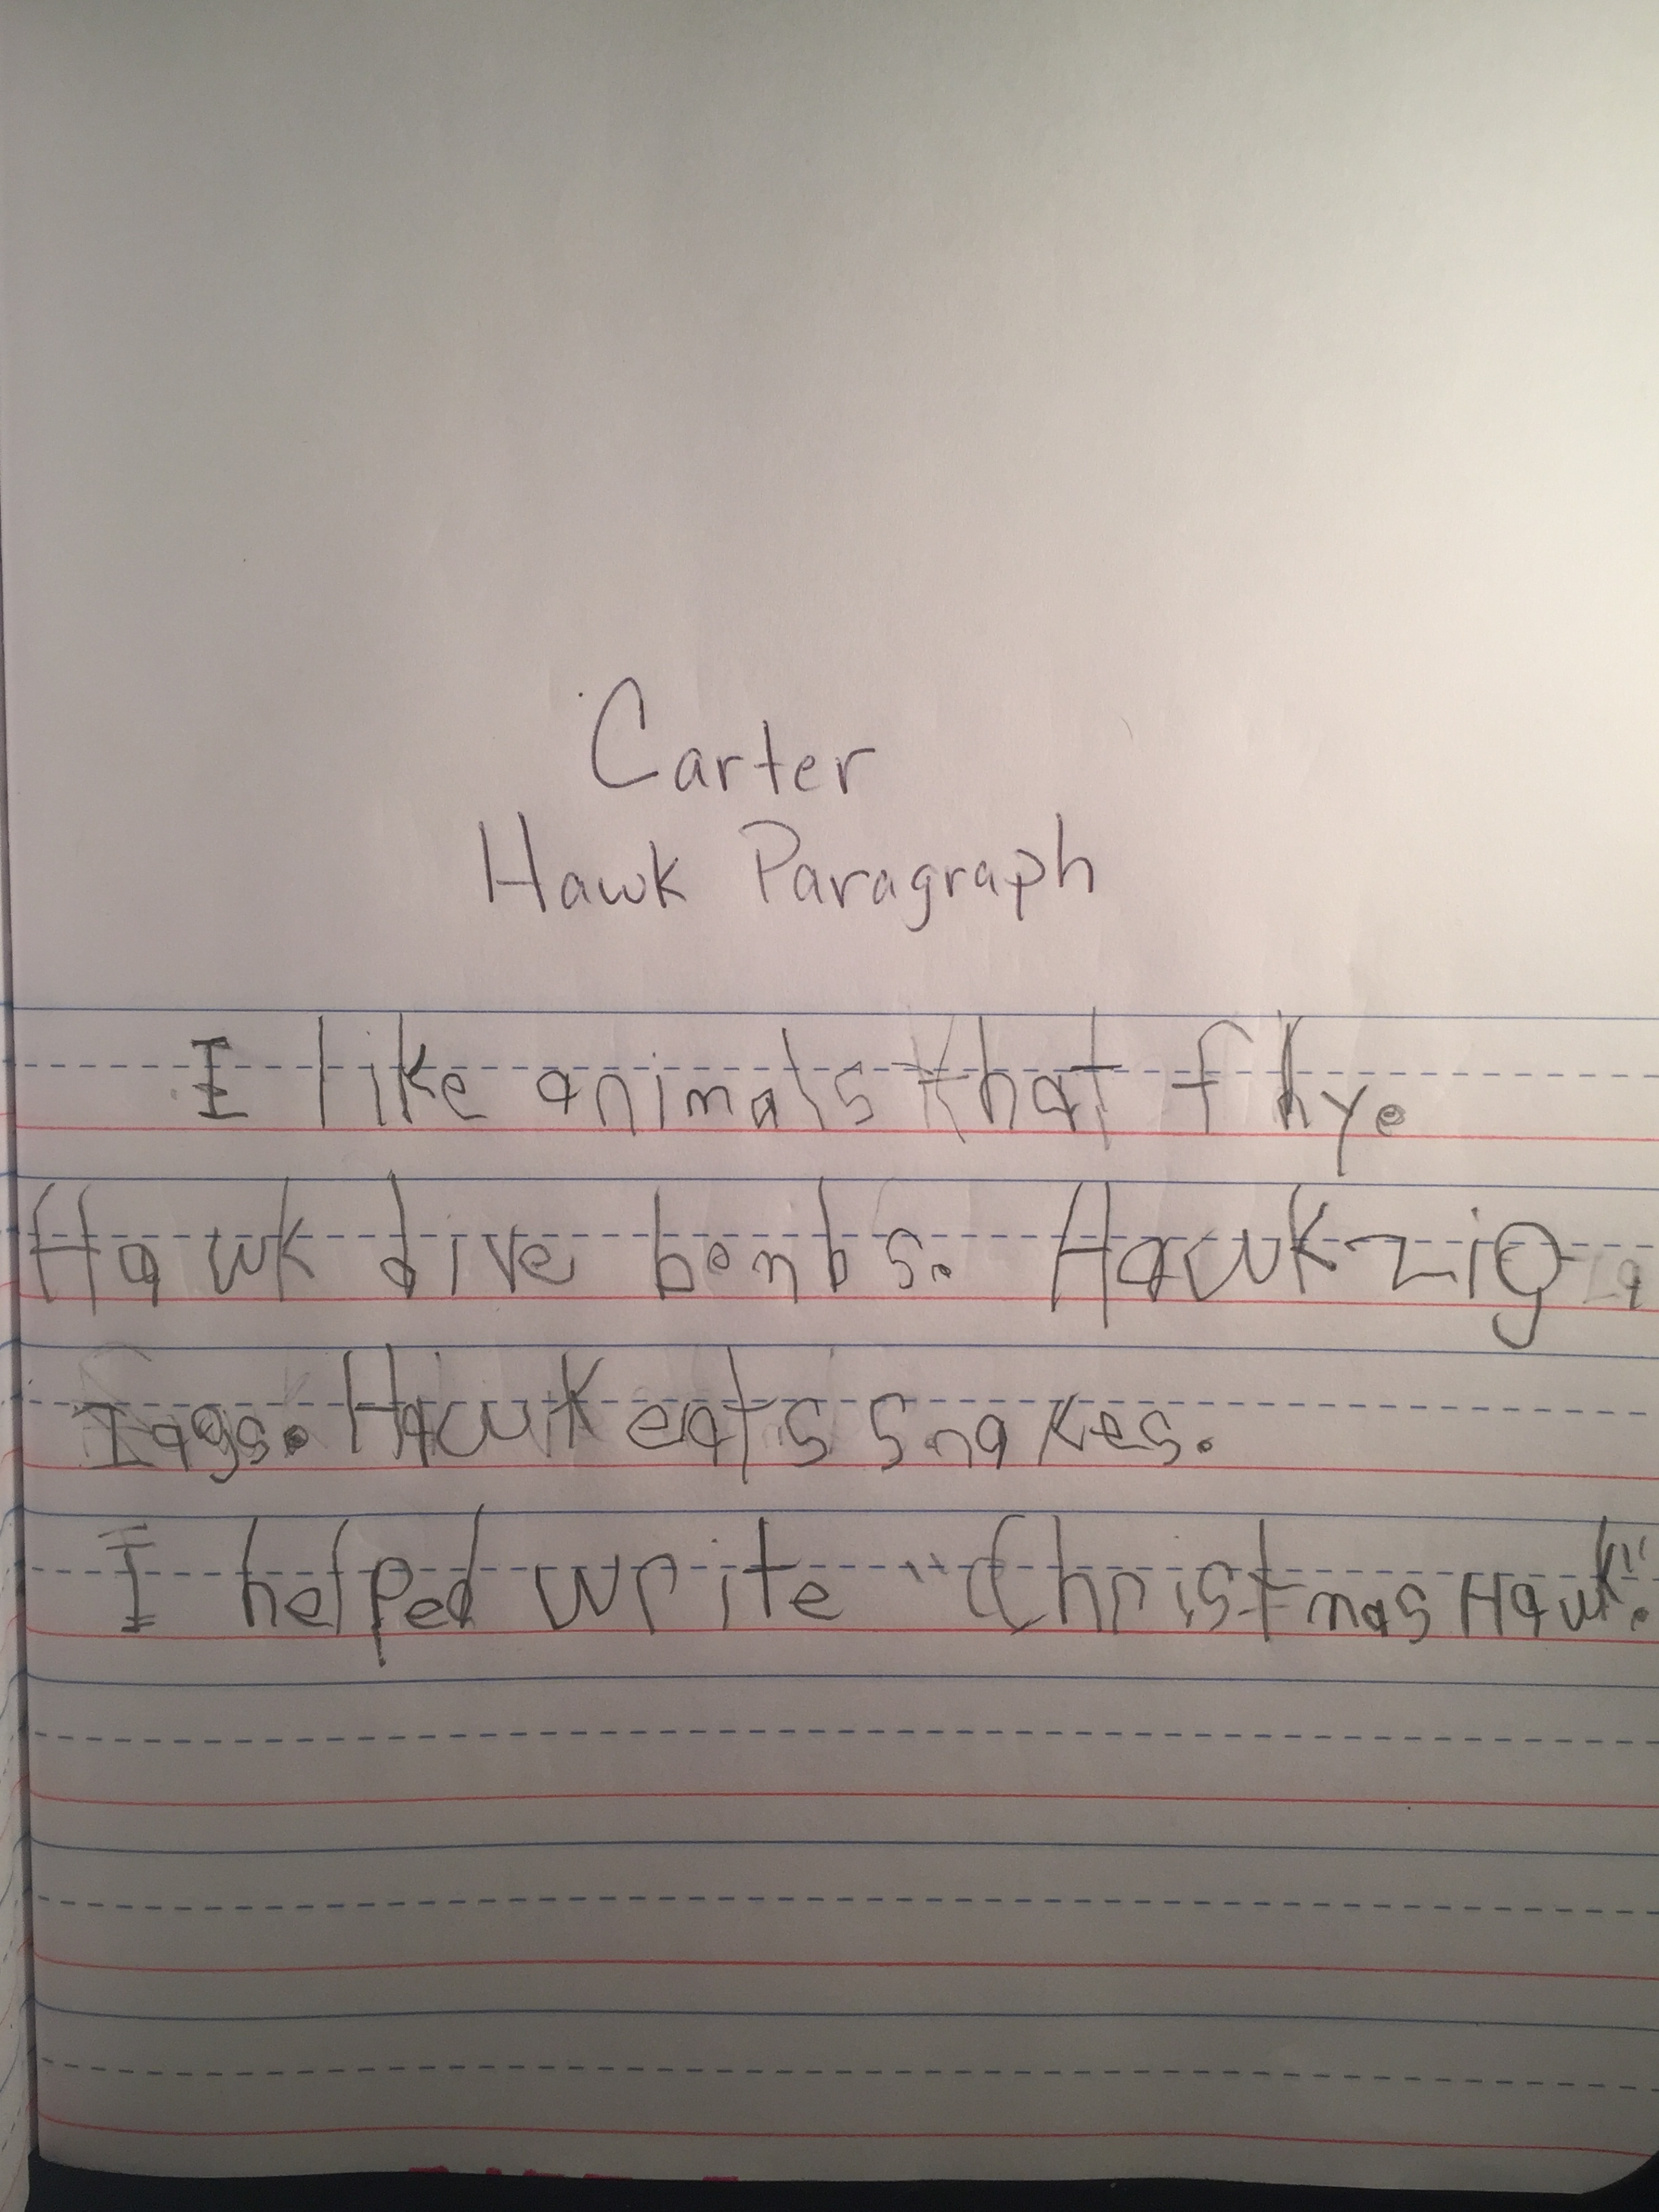 Carter
Hawk Paragraph
I like animals that fly.
Hawk dive bombs. Hawk zig
zags. Hawk eats snakes.
I helped write "Christmas Hawk".